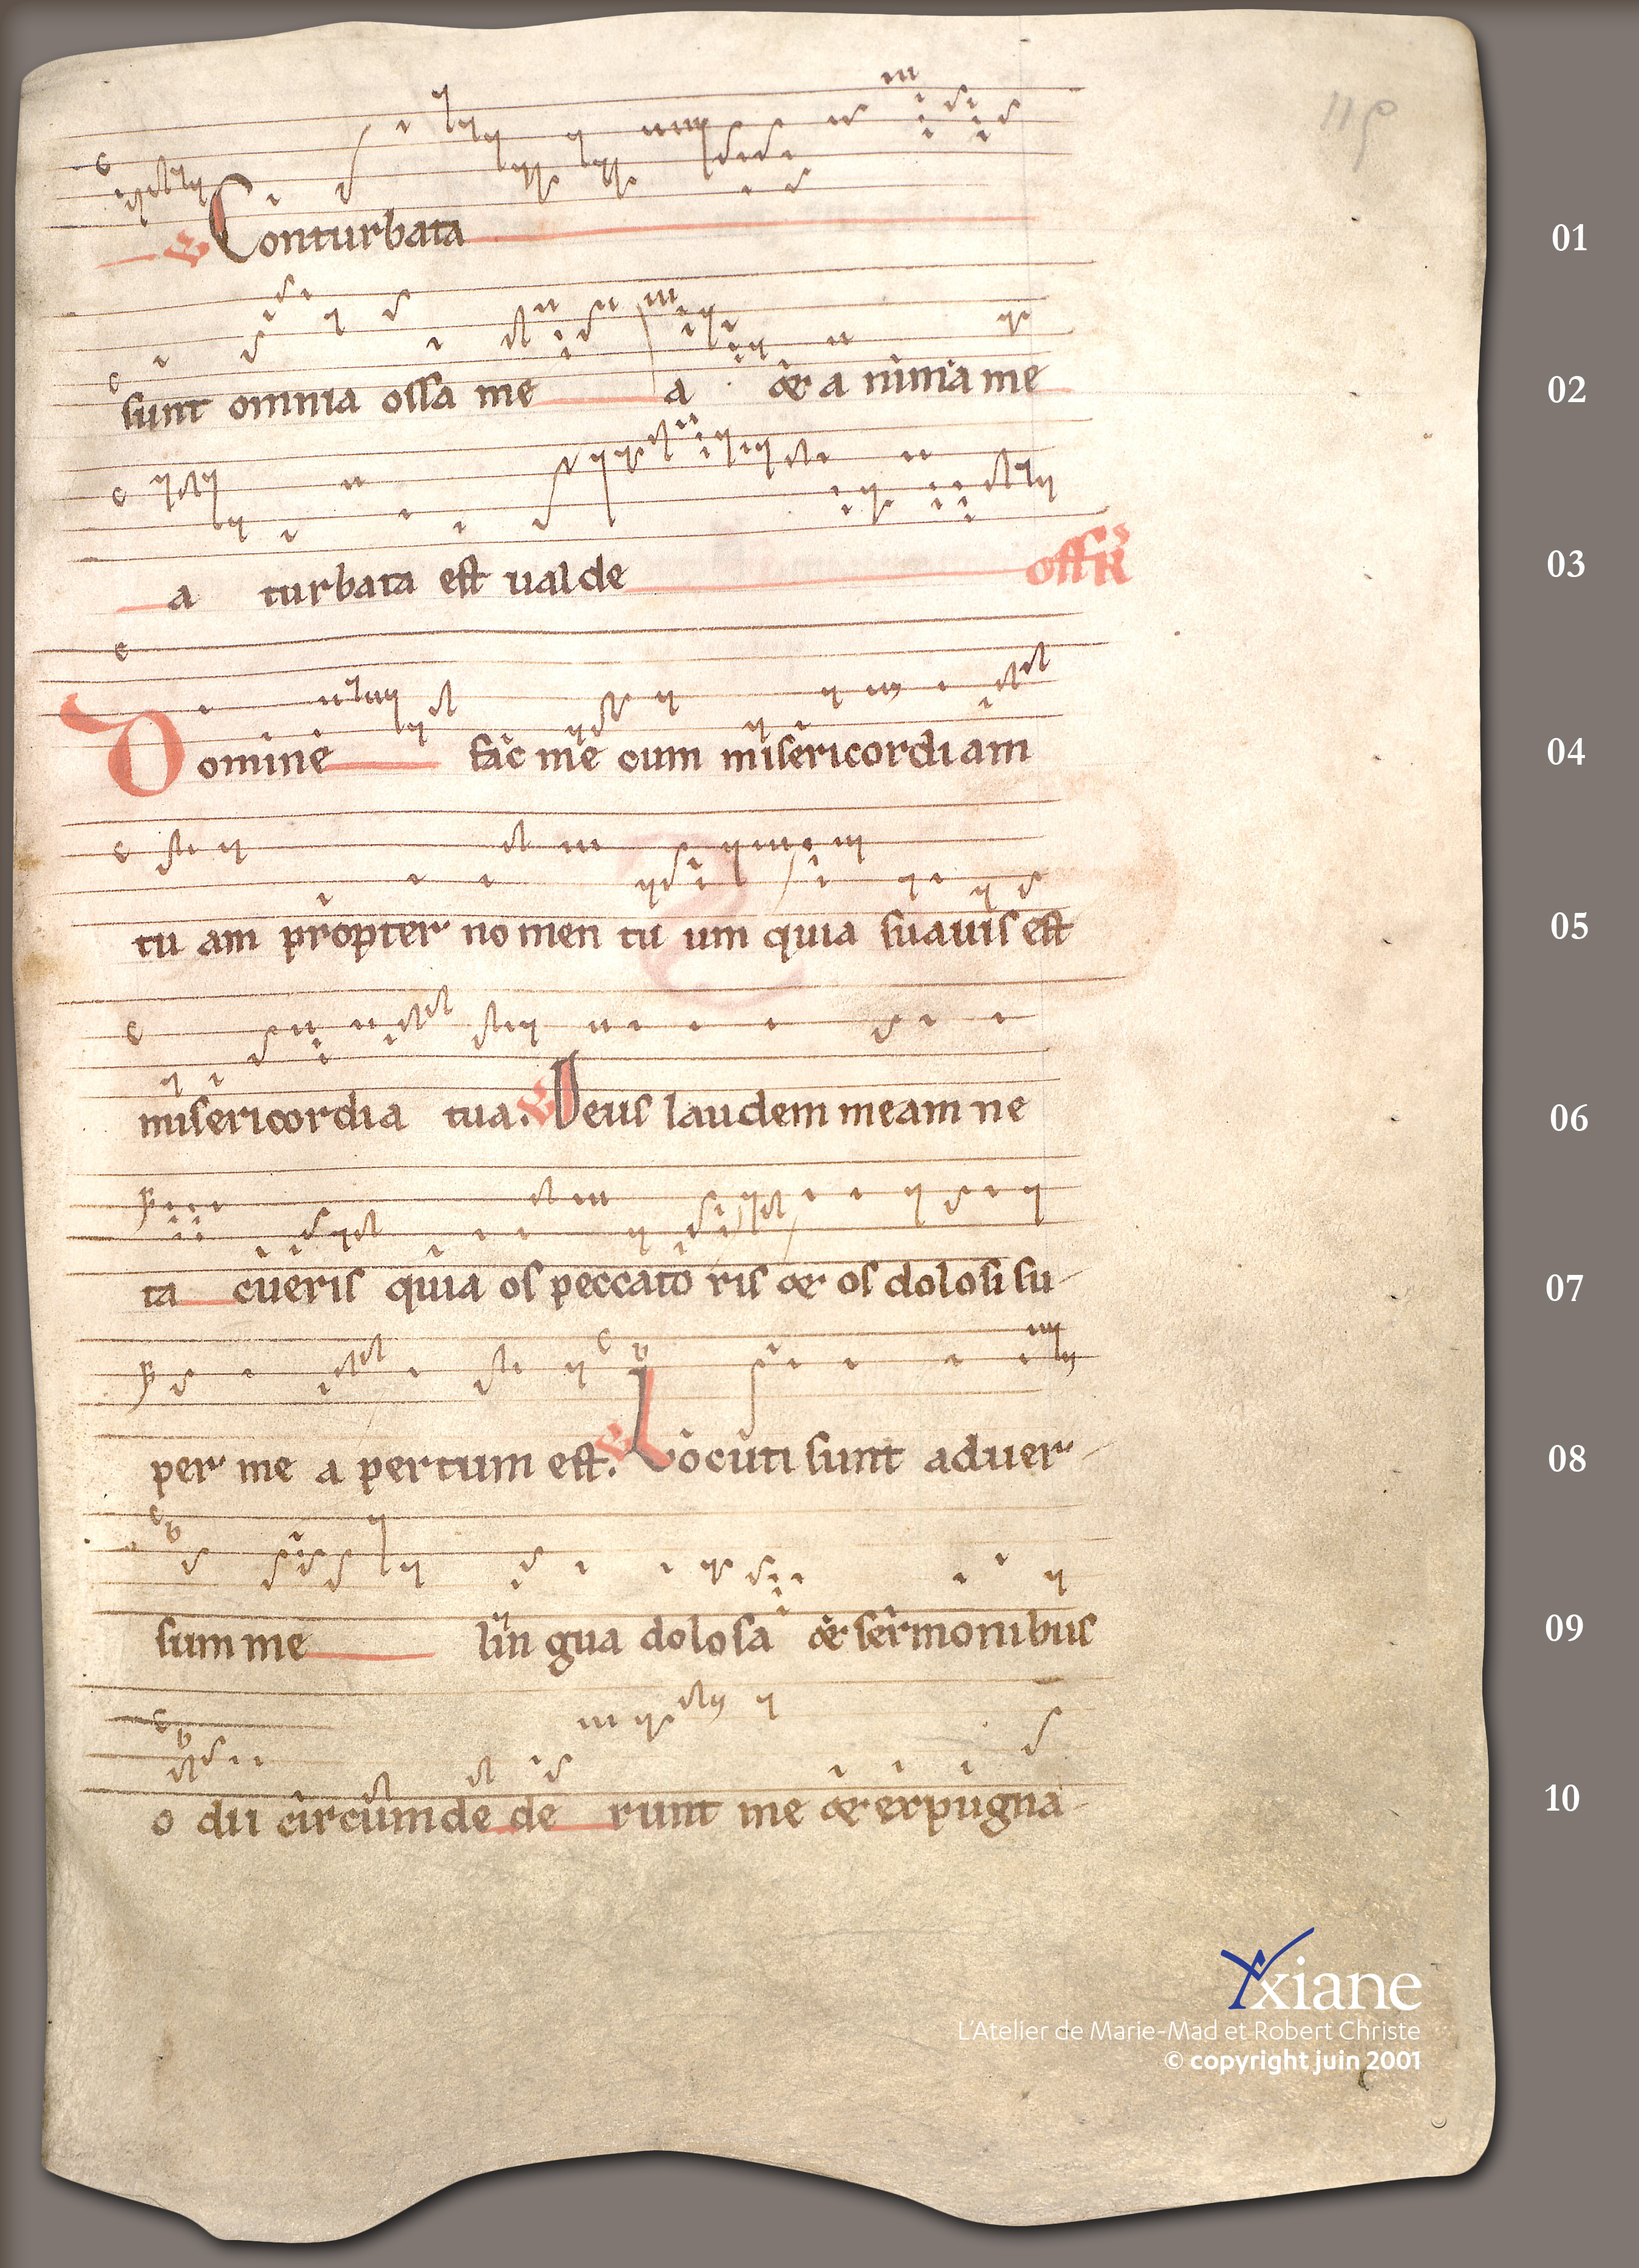 119
℣ Conturbata 01
sunt omnia ossa me a & a nima me 02
a turbata est ualde off R 03
Domine fac me cum misericordiam 04
tu am propter nomen tu um quia suauis est 05
misericordia tua. ℣ Deus laudem meam ne 06
ta cueris quia os peccato ris & os dolosi su- 07
per me a pertum est. ℣ Locuti sunt aduer- 08
sum me lin gua dolosa & sermonibus 09
o dii circumde de runt me & expugna- 10
Yxiane
L'Atelier de Marie-Mad et Robert Christe
© copyright juin 2001